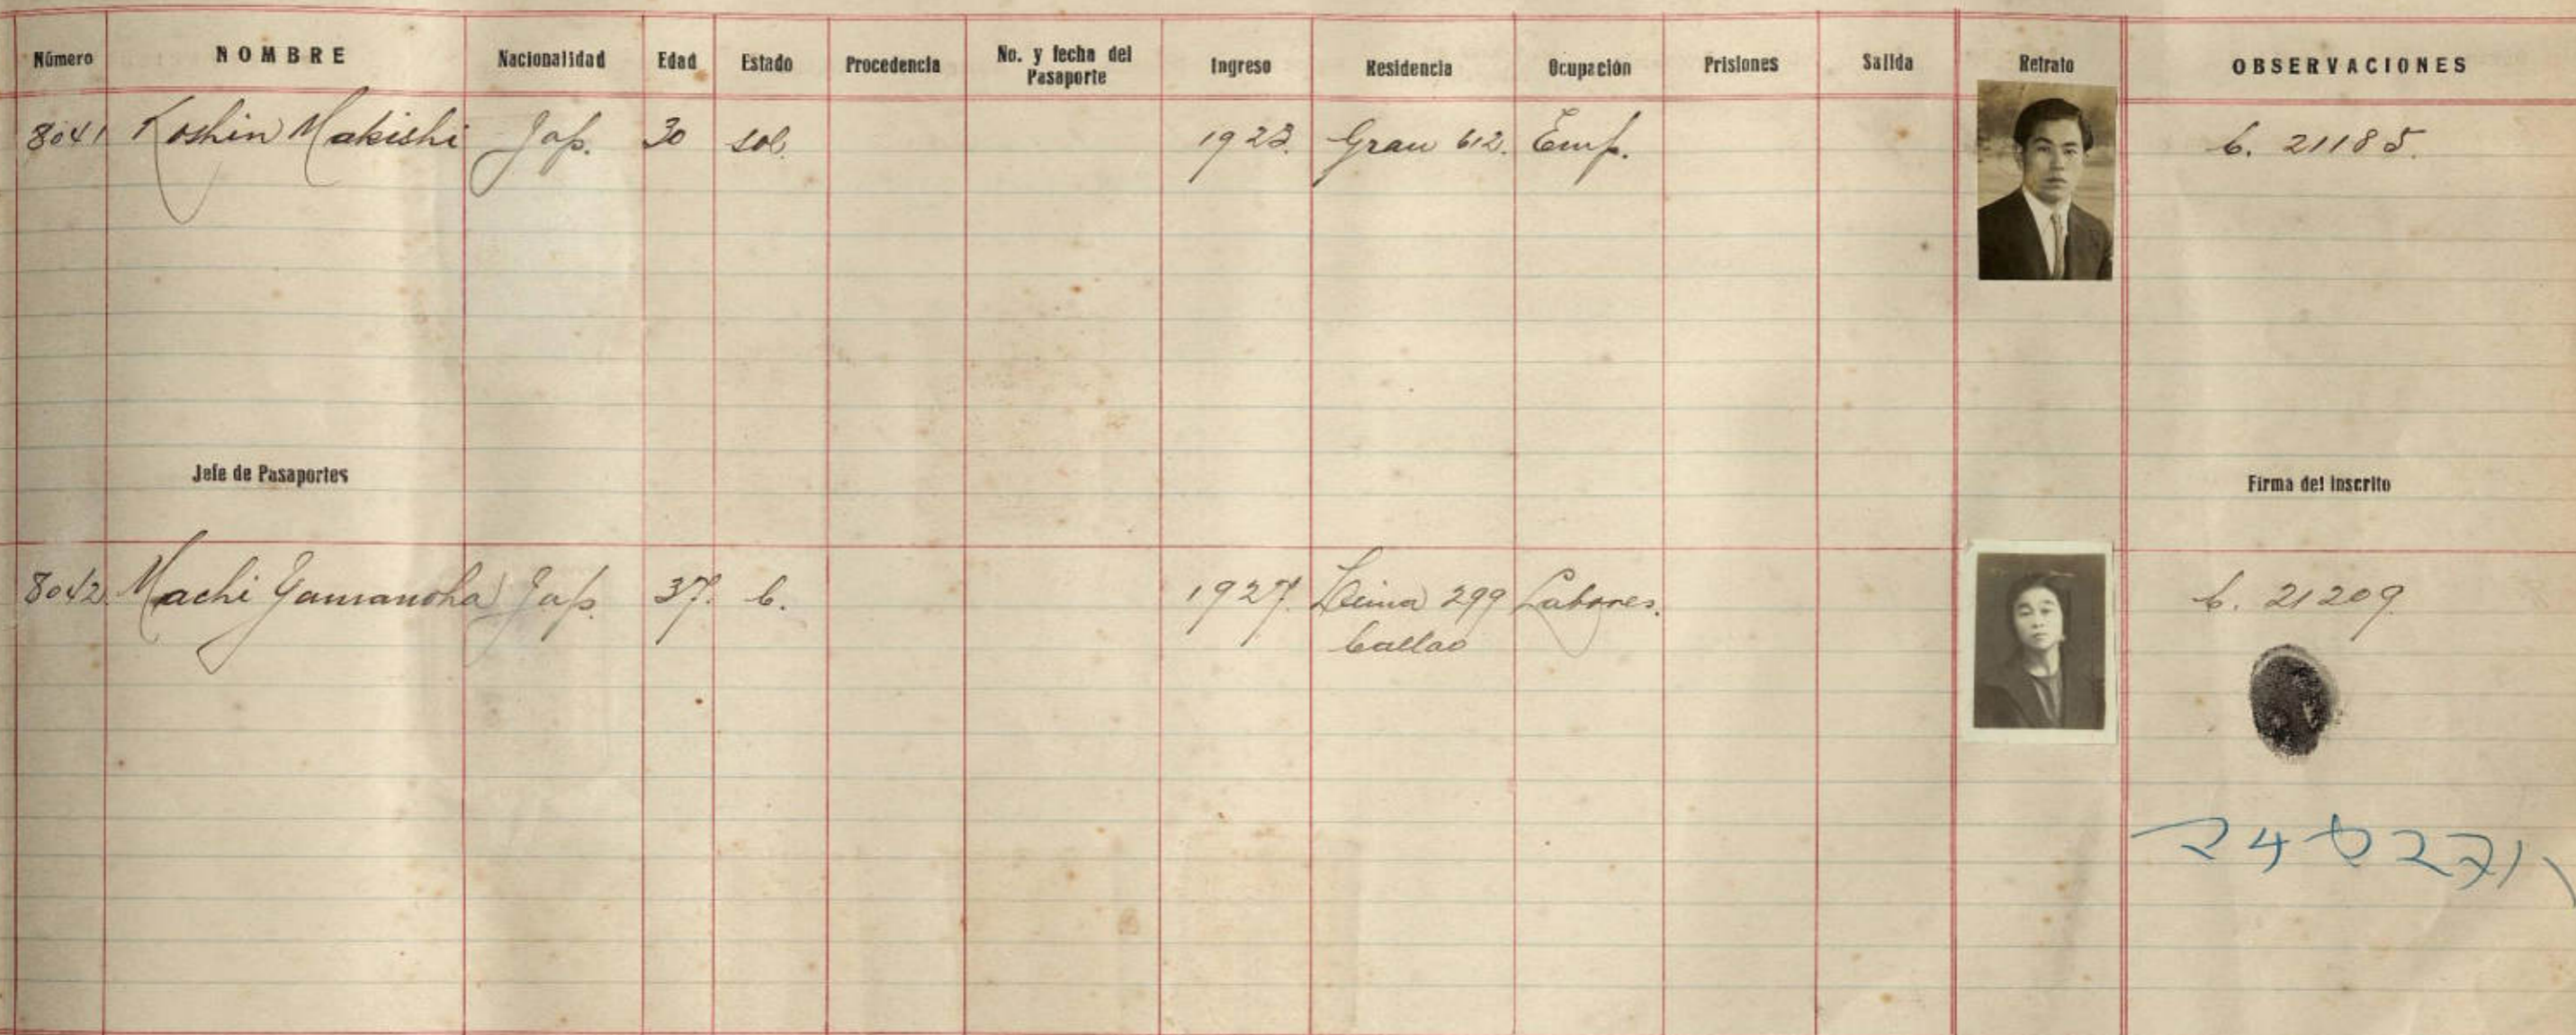 Número NOMBRE Nacionalidad Edad Estado Procedencia No. y fecha del Pasaporte Ingreso Residencia Ocupación Prisiones Salida Retrato OBSERVACIONES
8041 Koshin Makishi Jap. 30 sol. 1923. Grau 612. Emp. C. 21185.
Jefe de Pasaportes Firma del inscrito
8042 Machi Yamanoha Jap. 37. C. 1927. Lima 299 Labores. C. 21209
Callao